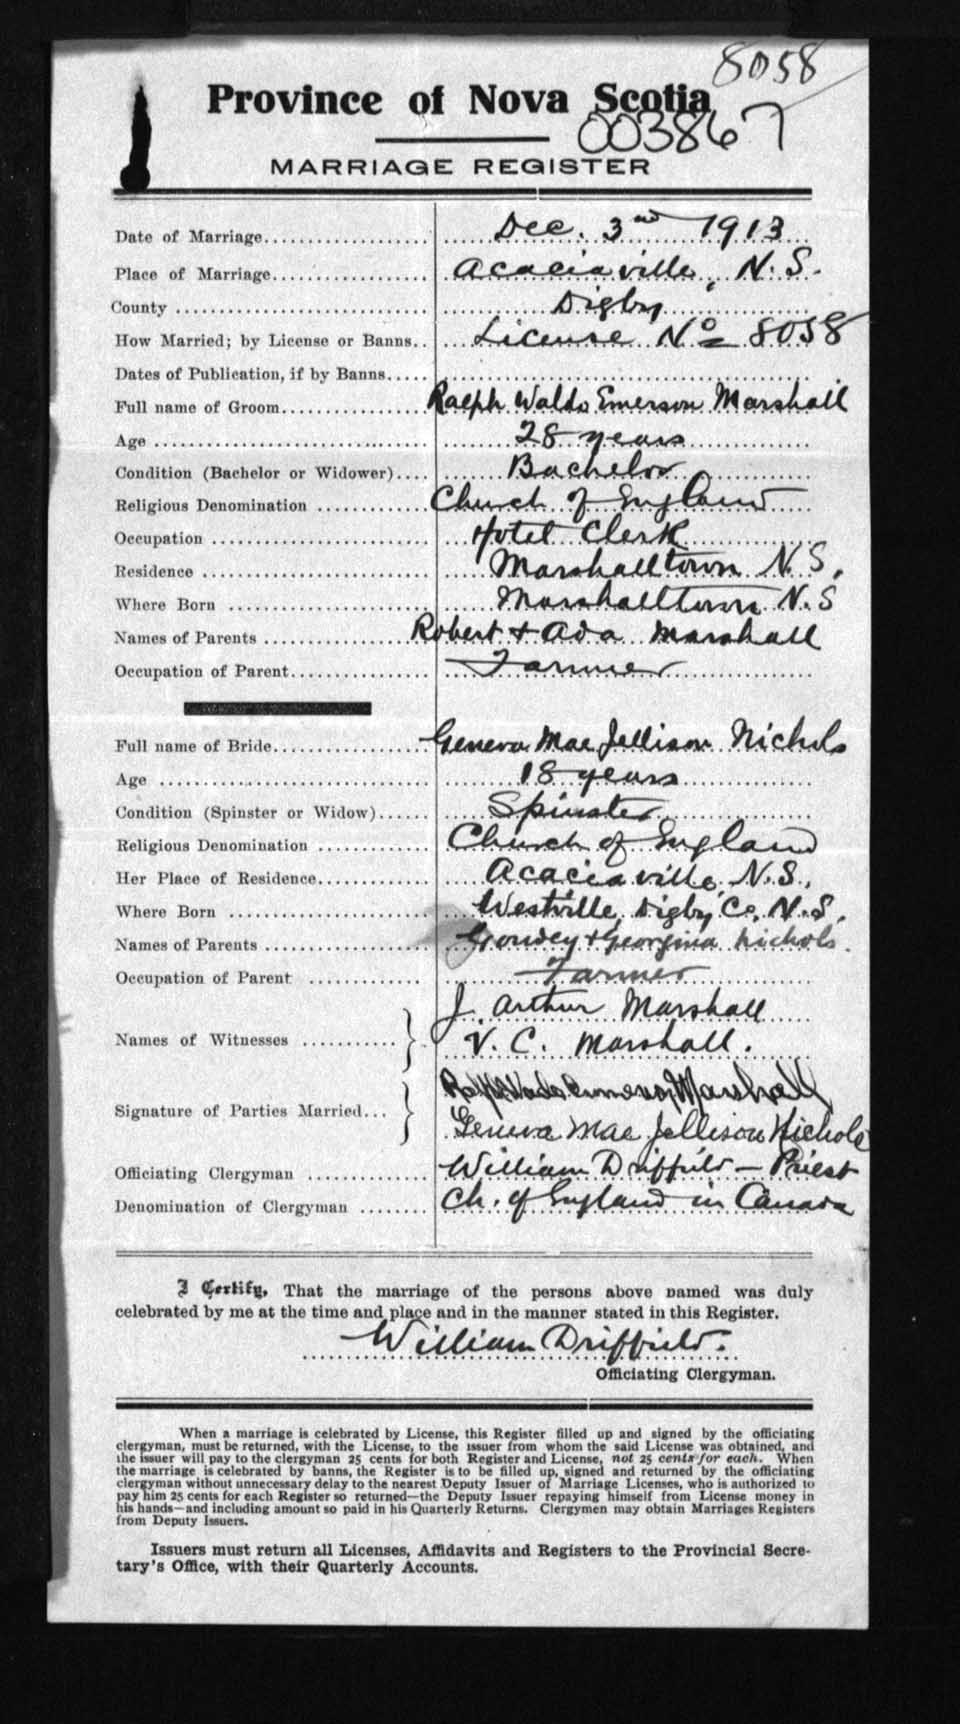 8058
Province of Nova Scotia
003867
MARRIAGE REGISTER
Date of Marriage.................... Dec. 3rd 1913
Place of Marriage................... Acaciaville, N.S.
County .............................. Digby
How Married; by License or Banns.. License No 8058
Dates of Publication, if by Banns.....
Full name of Groom................. Ralph Waldo Emerson Marshall
Age ................................. 28 years
Condition (Bachelor or Widower).... Bachelor
Religious Denomination ............. Church of England
Occupation .......................... Hotel Clerk
Residence ........................... Marshalltown N.S.
Where Born ........................ Marshalltown N.S
Names of Parents ................... Robert + Ada Marshall
Occupation of Parent................. Farmer
Full name of Bride.................. Geneva Mae Jellison Nichols
Age ................................. 18 years
Condition (Spinster or Widow)...... Spinster
Religious Denomination ............. Church of England
Her Place of Residence............. Acaciaville, N.S.,
Where Born ........................ Westville Digby Co. N.S.
Names of Parents ................... + Georgina Nichols.
Occupation of Parent .............. Farmer
J. Arthur Marshall
Names of Witnesses ...........
V. C. Marshall.
Ralph Waldo Emerson Marshall
Signature of Parties Married...
Geneva Mae Jellison Nichols
Officiating Clergyman .............. William Driffield – Priest
Denomination of Clergyman ........ Ch. of England in Canada
I Certify, That the marriage of the persons above named was duly
celebrated by me at the time and place and in the manner stated in this Register.
William Driffield.
Officiating Clergyman.
When a marriage is celebrated by License, this Register filled up and signed by the officiating
clergyman, must be returned, with the License, to the issuer from whom the said License was obtained, and
the issuer will pay to the clergyman 25 cents for both Register and License, not 25 cents for each. When
the marriage is celebrated by banns, the Register is to be filled up, signed and returned by the officiating
clergyman without unnecessary delay to the nearest Deputy Issuer of Marriage Licenses, who is authorized to
pay him 25 cents for each Register so returned—the Deputy Issuer repaying himself from License money in
his hands—and including amount so paid in his Quarterly Returns. Clergymen may obtain Marriages Registers
from Deputy Issuers.
Issuers must return all Licenses, Affidavits and Registers to the Provincial Secre-
tary's Office, with their Quarterly Accounts.